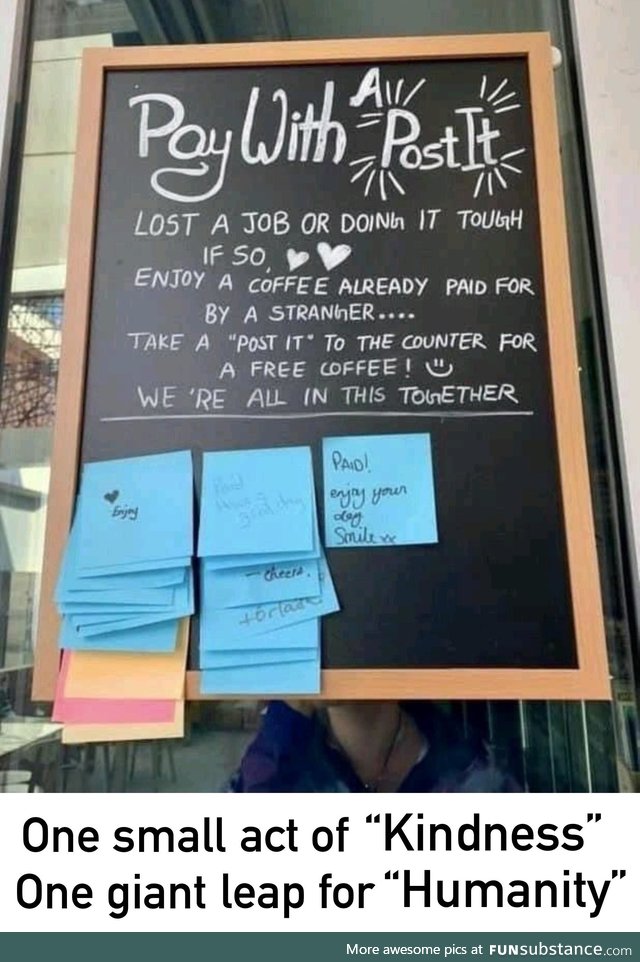 Pay With A Post It
LOST A JOB OR DOING IT TOUGH
IF SO,
ENJOY A COFFEE ALREADY PAID FOR
BY A STRANGER....
TAKE A "POST IT" TO THE COUNTER FOR
A FREE COFFEE!
WE'RE ALL IN THIS TOGETHER
Enjoy
Paid
PAID!
enjoy your
day
Smile xx
cheers.
One small act of “Kindness”
One giant leap for “Humanity”
More awesome pics at FUNsubstance.com